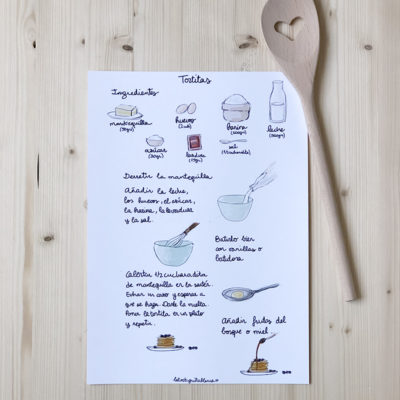 Tortitas
Ingredientes
mantequilla
huevo
harina
leche
azúcar
levadura
sal
Derretir la mantequilla
Añadir la leche,
los huevos, el azúcar,
la harina, la levadura
y la sal.
Batirlo bien
con varillas o
batidora
Calentar 1/2 cucharadita
de mantequilla en la sartén.
Echar un cazo y esperar a
que se haga. Darle la vuelta.
Poner la tortita en un plato
y repetir.
Añadir frutos del
bosque o miel